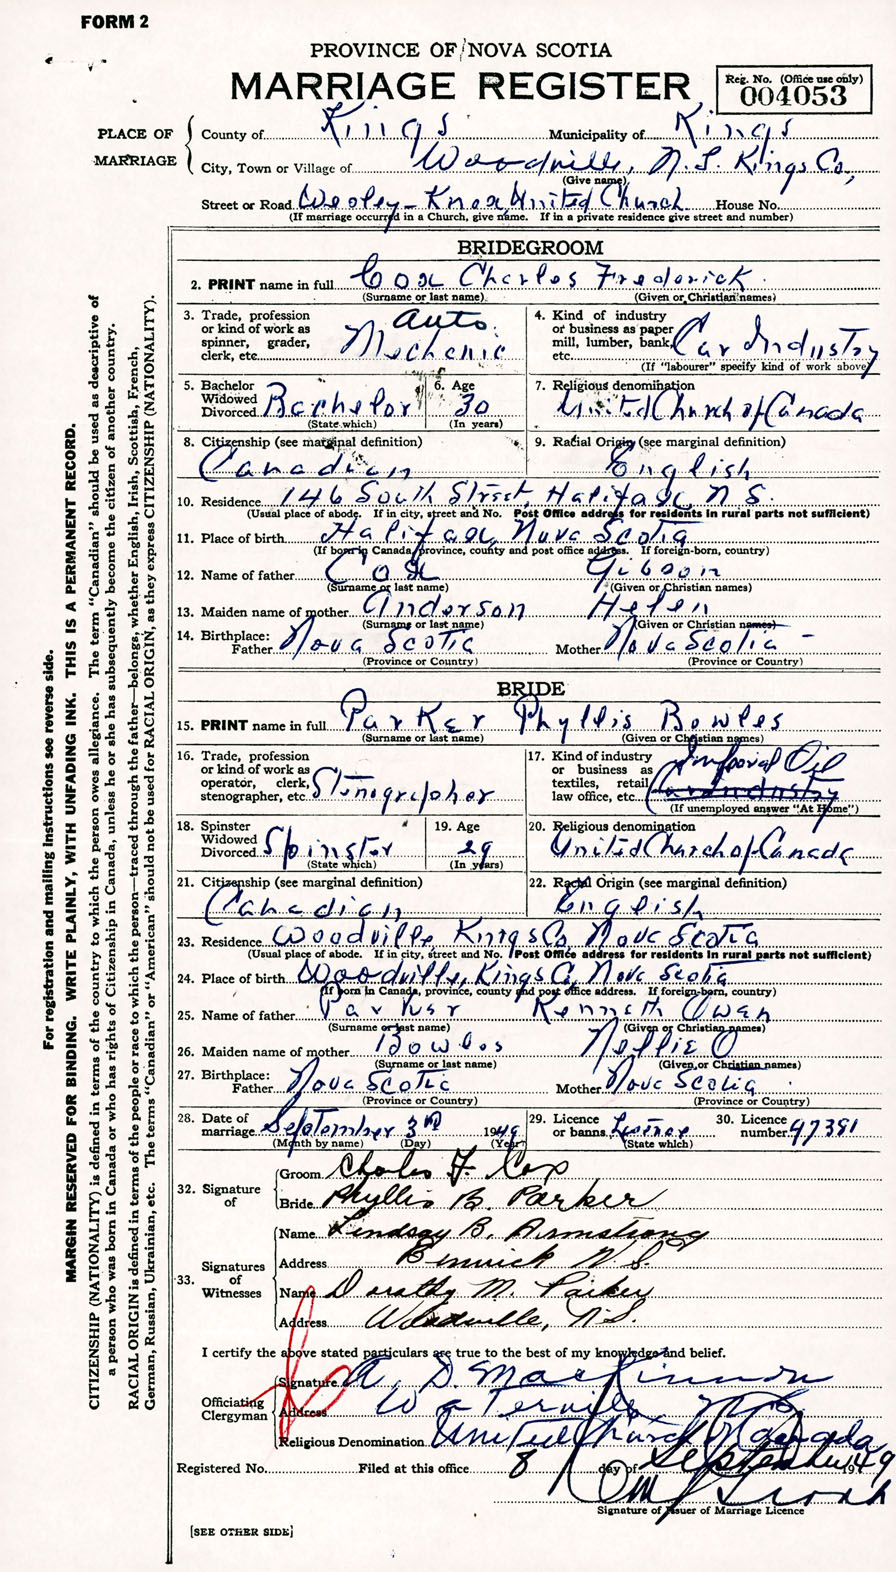 FORM 2
PROVINCE OF NOVA SCOTIA
MARRIAGE REGISTER
Reg. No. (Office use only)
004053
PLACE OF MARRIAGE
County of Kings Municipality of Kings
City, Town or Village of Woodville, N.S. Kings Co,
(Give name)
Street or Road Wesley-Knox United Church House No.
(If marriage occurred in a Church, give name. If in a private residence give street and number)
BRIDEGROOM
2. PRINT name in full Cox Charles Frederick
(Surname or last name) (Given or Christian names)
3. Trade, profession or kind of work as spinner, grader, clerk, etc. Auto Mechanic
4. Kind of industry or business as paper mill, lumber, bank, etc. Car Industry
(If "labourer" specify kind of work above)
5. Bachelor Widowed Divorced Bachelor
(State which)
6. Age 30
(In years)
7. Religious denomination
United Church of Canada
8. Citizenship (see marginal definition)
Canadian
9. Racial Origin (see marginal definition)
English
10. Residence 146 South Street, Halifax N.S.
(Usual place of abode. If in city, street and No. Post Office address for residents in rural parts not sufficient)
11. Place of birth Halifax, Nova Scotia
(If born in Canada, province, county and post office address. If foreign-born, country)
12. Name of father Cox Gibson
(Surname or last name) (Given or Christian names)
13. Maiden name of mother Anderson Helen
(Surname or last name) (Given or Christian names)
14. Birthplace: Father Nova Scotia Mother Nova Scotia -
(Province or Country) (Province or Country)
BRIDE
15. PRINT name in full Parker Phyllis Bowles
(Surname or last name) (Given or Christian names)
16. Trade, profession or kind of work as operator, clerk, stenographer, etc. Stenographer
17. Kind of industry or business as textiles, retail law office, etc. Imperial Oil
Car Industry
(If unemployed answer "At Home")
18. Spinster Widowed Divorced Spinster
(State which)
19. Age 29
(In years)
20. Religious denomination
United Church of Canada
21. Citizenship (see marginal definition)
Canadian
22. Racial Origin (see marginal definition)
English
23. Residence Woodville, Kings Co, Nova Scotia
(Usual place of abode. If in city, street and No. Post Office address for residents in rural parts not sufficient)
24. Place of birth Woodville, Kings Co, Nova Scotia
(If born in Canada, province, county and post office address. If foreign-born, country)
25. Name of father Parker Kenneth Owen
(Surname or last name) (Given or Christian names)
26. Maiden name of mother Bowles Nellie O
(Surname or last name) (Given or Christian names)
27. Birthplace: Father Nova Scotia Mother Nova Scotia
(Province or Country) (Province or Country)
28. Date of marriage September 3rd 1949
(Month by name) (Day) (Year)
29. Licence or banns License
(State which)
30. Licence number 97391
32. Signature of
Groom Charles F. Cox
Bride Phyllis B. Parker
33. Signatures of Witnesses
Name Lindsay B. Armstrong
Address Berwick N.S.
Name Dorothy M. Parker
Address Woodville, N.S.
I certify the above stated particulars are true to the best of my knowledge and belief.
Officiating Clergyman
Signature A. D. MacKinnon
Address Waterville N.S.
Religious Denomination United Church of Canada
Registered No. Filed at this office 8 day of September 1949
Signature of Issuer of Marriage Licence
[SEE OTHER SIDE]
For registration and mailing instructions see reverse side.
MARGIN RESERVED FOR BINDING. WRITE PLAINLY, WITH UNFADING INK. THIS IS A PERMANENT RECORD.
CITIZENSHIP (NATIONALITY) is defined in terms of the country to which the person owes allegiance. The term "Canadian" should be used as descriptive of
a person who was born in Canada or who has rights of Citizenship in Canada, unless he or she has subsequently become the citizen of another country.
RACIAL ORIGIN is defined in terms of the people or race to which the person—traced through the father—belongs, whether English, Irish, Scottish, French,
German, Russian, Ukrainian, etc. The terms "Canadian" or "American" should not be used for RACIAL ORIGIN, as they express CITIZENSHIP (NATIONALITY).